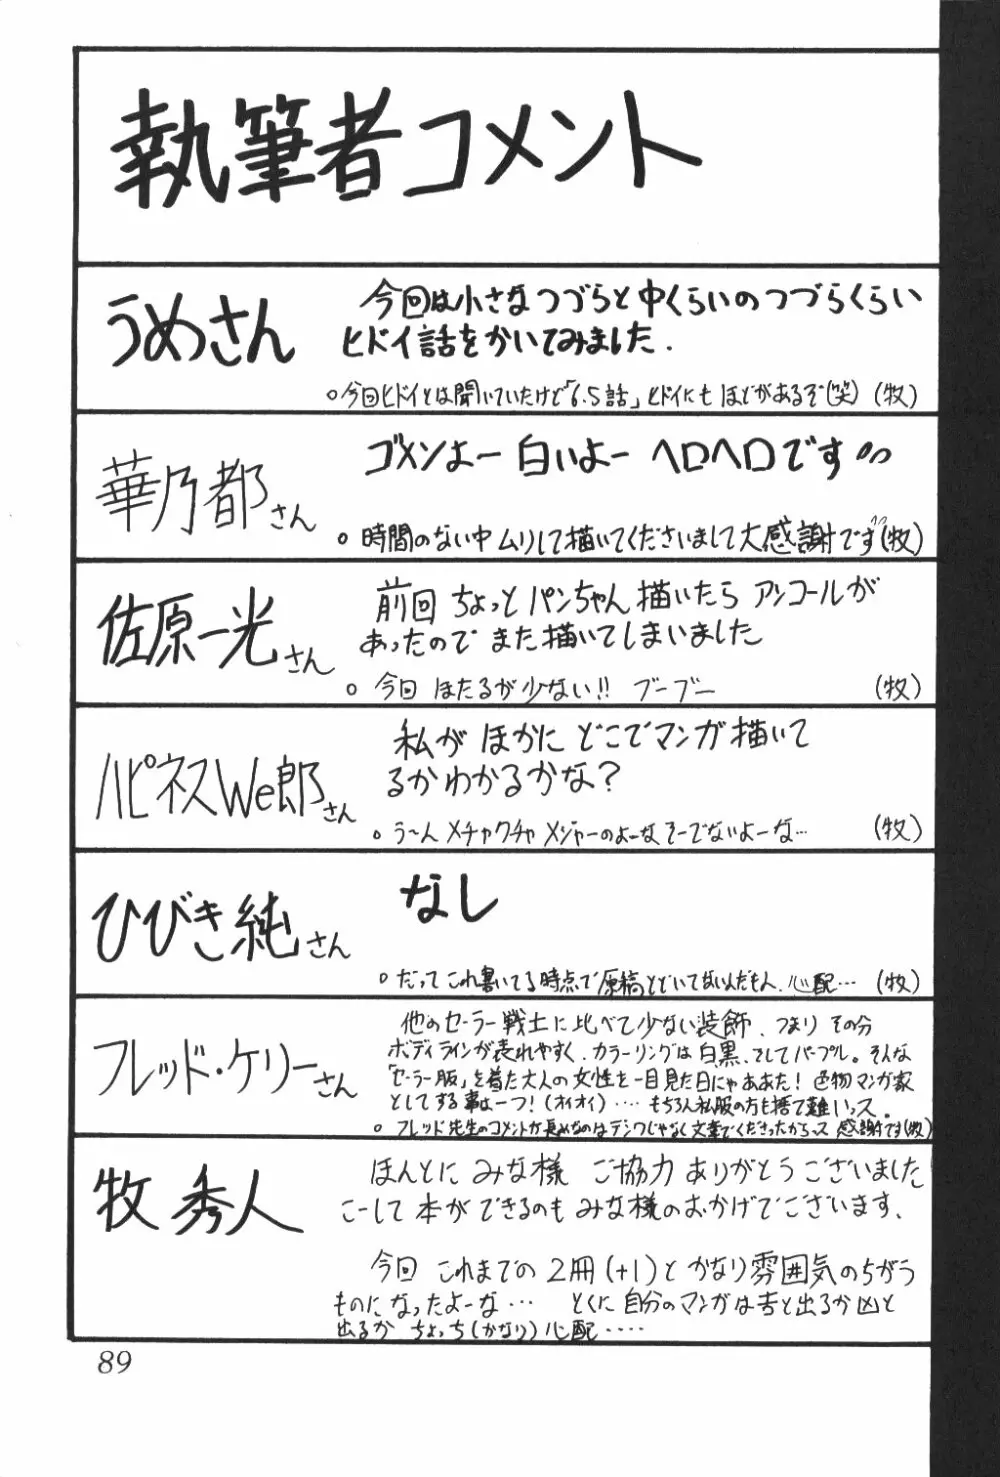 執筆者コメント
うめさん
今回は小さなつづらと中くらいのつづらくらい
ヒドイ話をかいてみました.
○今回ヒドイとは聞いていたけど「6.5話」ヒドイにもほどがあるぞ(笑) (牧)
華乃都さん
ゴメンよー 白いよー ヘロヘロです
○時間のない中ムリして描いてくださいまして大感謝です(牧)
佐原一光さん
前回 ちょっとパンちゃん描いたら アンコールが
あったので また描いてしまいました
○今回 ほたるが少ない!! ブーブー (牧)
ハピネスWe郎さん
私が ほかに どこでマンガ描いて
るかわかるかな?
○う〜ん メチャクチャ メジャーのよーなそーでないよーな… (牧)
ひびき純さん
なし
○だって これ書いてる時点で原稿とどいてないんだもん、心配… (牧)
フレッド・ケリーさん
他のセーラー戦士に比べて少ない装飾、つまり その分
ボディラインが表れやすく、カラーリングは白黒、そしてパープル。そんな
「セーラー服」を着た大人の女性を一目見た日にゃああた! 色物マンガ家
としてする事は一つ! (オイオイ) …. もちろん私服の方も捨て難いっス。
○フレッド先生のコメントが長めなのはデンワじゃなく文章でくださったからっス 感謝です(牧)
牧 秀人
ほんとに みな様 ご協力 ありがとうございました
こーして本ができるのもみな様のおかげでございます、
今回 これまでの2冊(+1)とかなり雰囲気のちがう
ものになったよーな… とくに自分のマンガは吉と出るか凶と
出るか ちょっち(かなり)心配….
89